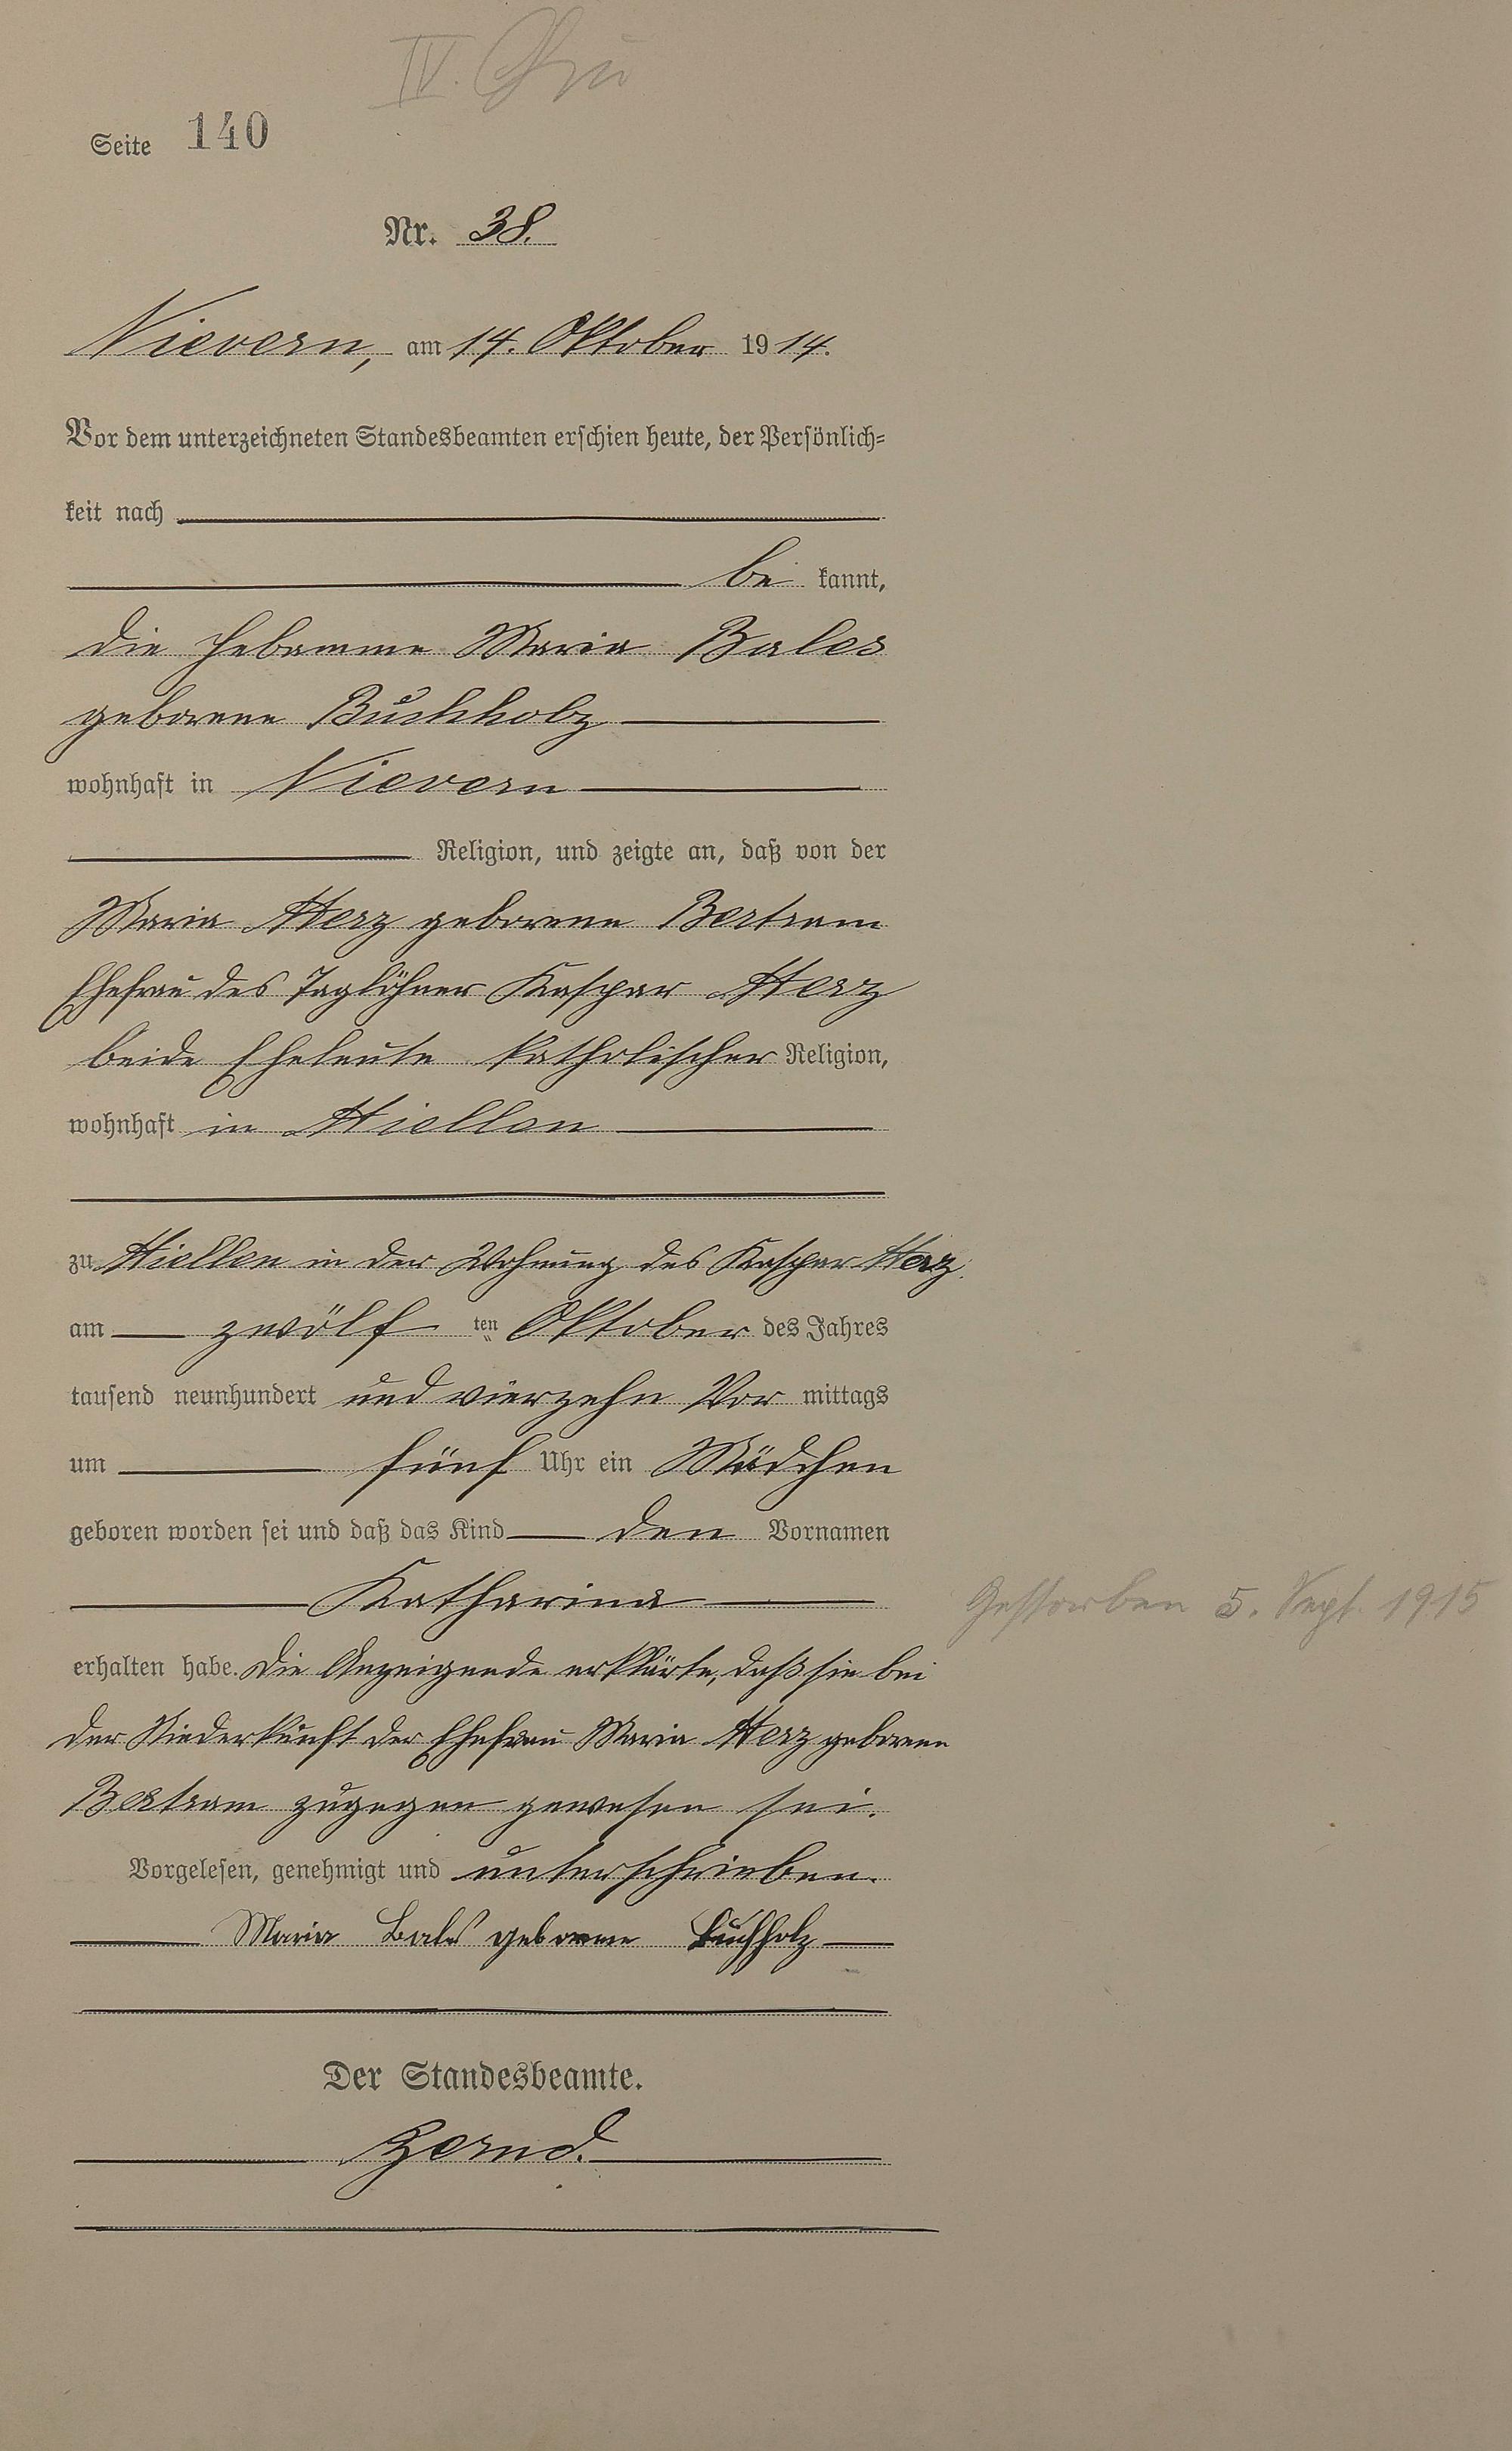 IV.
Seite 140
Nr. 38.
Nievern, am 14. Oktober 1914.
Vor dem unterzeichneten Standesbeamten erschien heute, der Persönlich-
keit nach
be kannt,
die Hebamme Maria Bales
geborene Buchholz
wohnhaft in Nievern
Religion, und zeigte an, daß von der
Maria Herz geborene Bertram
Ehefrau des Taglöhner Kaspar Herz
beide Eheleute katholischer Religion,
wohnhaft in Miellen
zu Miellen in der Wohnung des Kaspar Herz
am zwölf ten Oktober des Jahres
tausend neunhundert und vierzehn Vor mittags
um fünf Uhr ein Mädchen
geboren worden sei und daß das Kind den Vornamen
Katharina
Gestorben 5. Sept. 1915
erhalten habe. Die Anzeigende erklärte, daß sie bei
der Niederkunft der Ehefrau Maria Herz geborene
Bertram zugegen gewesen sei.
Vorgelesen, genehmigt und unterschrieben.
Maria Bales geborene Buchholz
Der Standesbeamte.